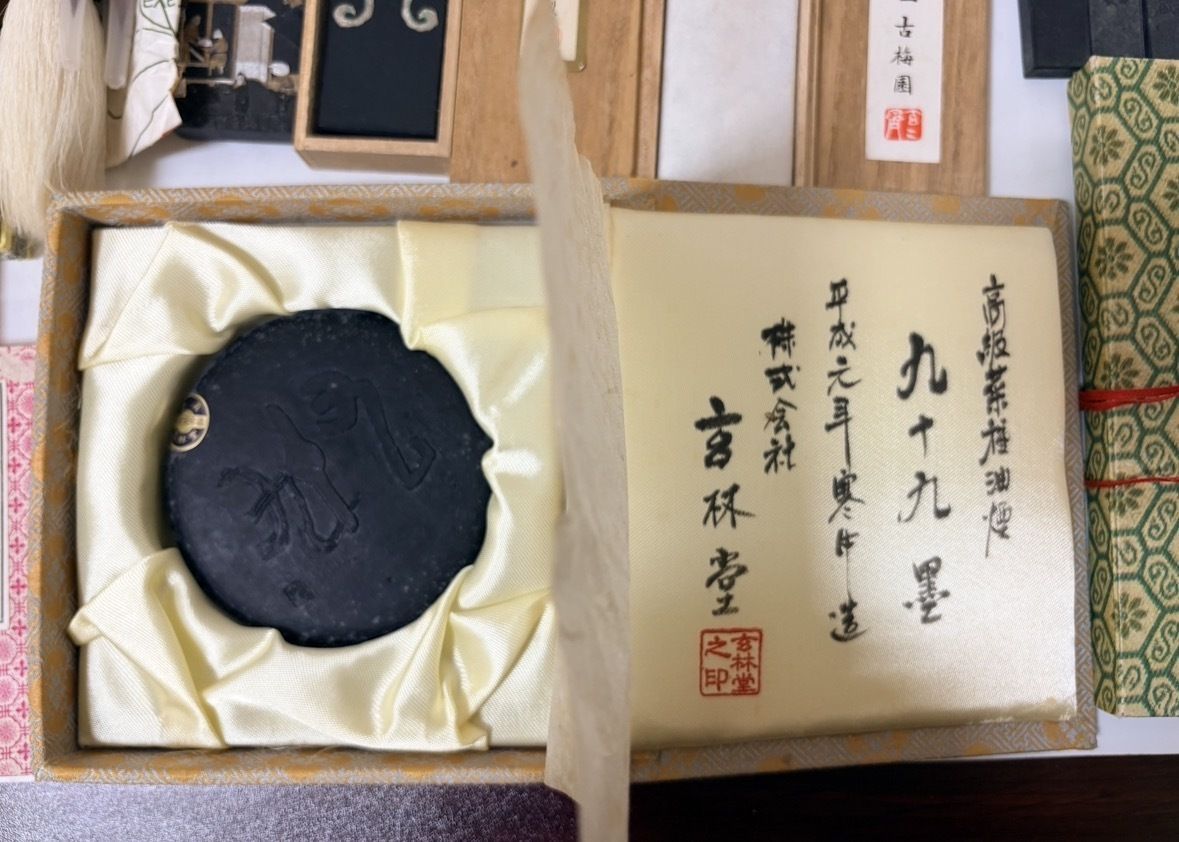 高級菜種油煙
九十九墨
平成元年寒中造
株式会社
玄林堂
玄林堂之印
古梅園